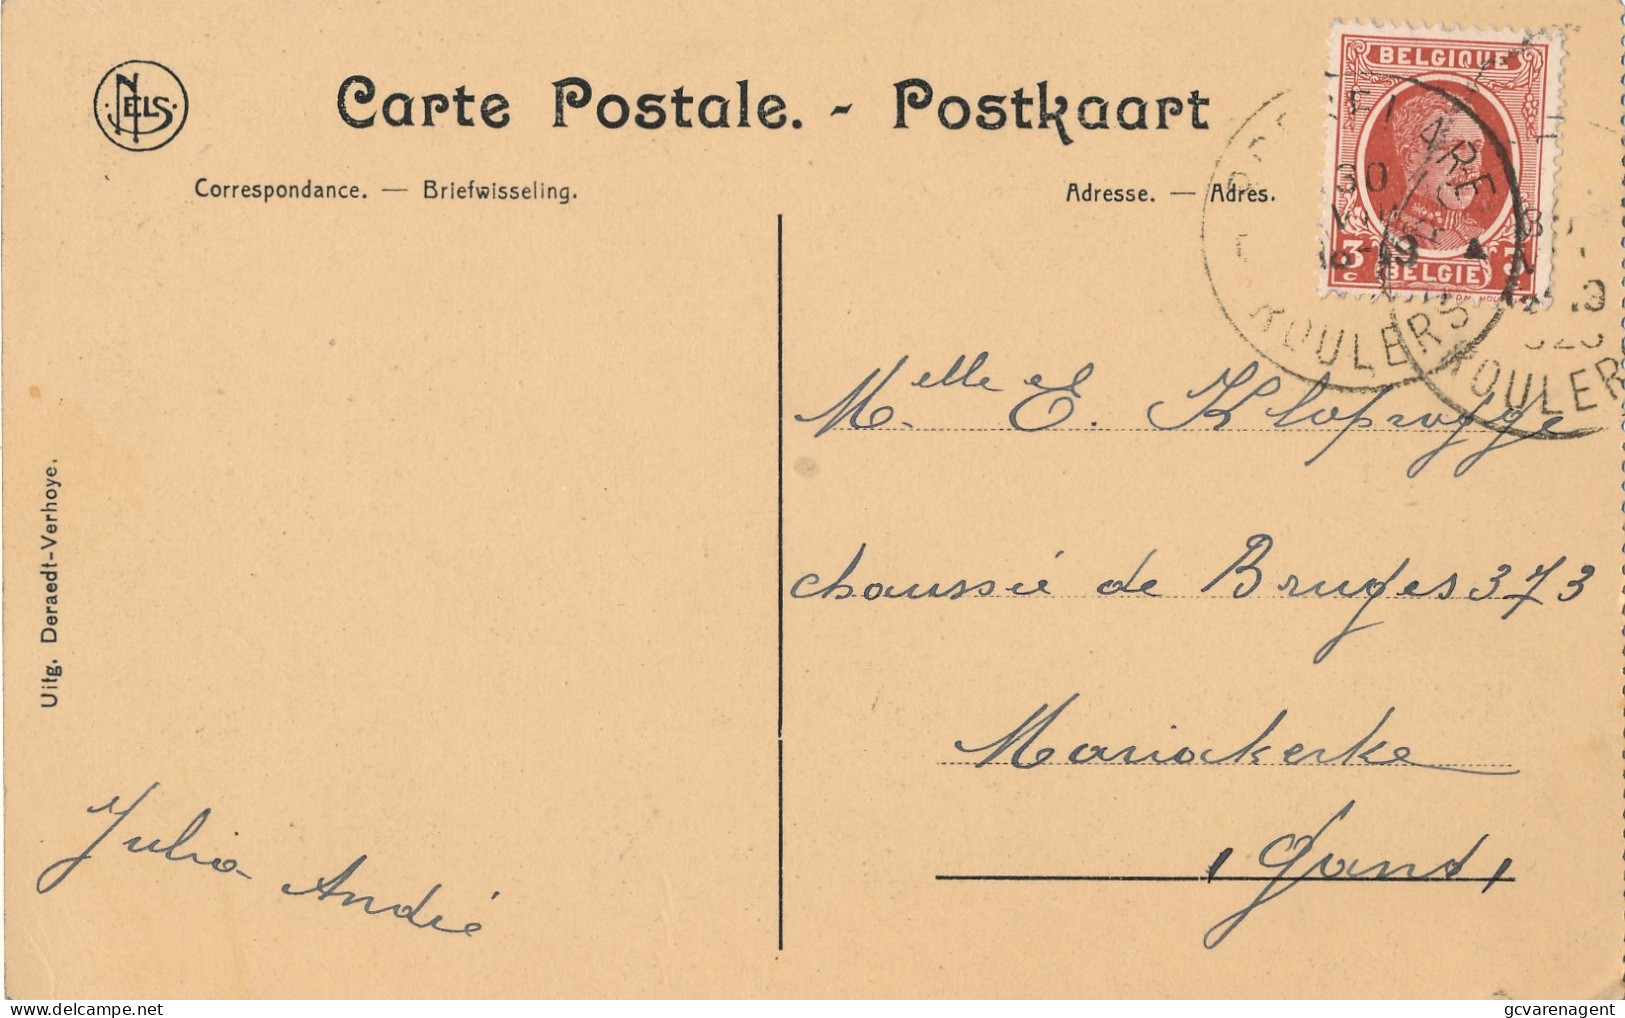 NELS
Carte Postale. - Postkaart
Correspondance. — Briefwisseling.
Adresse. — Adres.
BELGIQUE
3 c
BELGIE
30
18-19
ROULERS
ROULER
Melle E. Kloprogge
chaussée de Bruges 373
Mariakerke
(Gand)
Uitg. Deraedt-Verhoye.
Julia André
gcvarenagent